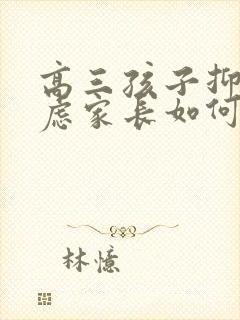 高三孩子抑
虑家长如何
林憶